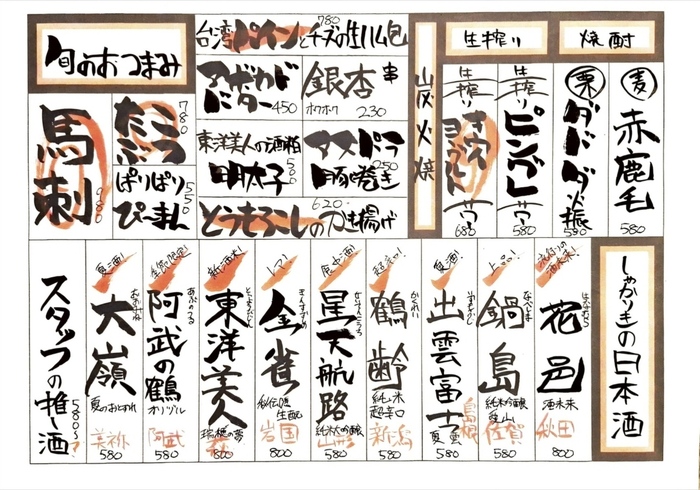 旬のおつまみ
馬刺
980
たこぶつ
780
ぱりぱり
ぴーまん
550
台湾パインとチーズの生ハム包
780
バター
450
銀杏串
ホクホク
230
東洋美人の酒粕
明太子
500
アスパラ
豚巻き
250
とうもろこしのかき揚げ
620
炭火焼
生搾り
焼酎
麦
赤鹿毛
580
栗
ダバダ火振
580
生搾り
ピングレ
サワー
580
生搾り
サワー
680
しゃかりきの日本酒
花邑
酒未来
秋田
800
上品!
鍋島
なべしま
純米吟醸
愛山
佐賀
580
夏酒!
出雲富士
夏雲
島根
580
超辛口!
鶴齢
かくれい
純米
超辛口
新潟
800
星天航路
純米吟醸
山形
580
レア!
金雀
きんすずめ
秘伝隠
生酛
岩国
800
新酒未!
東洋美人
とうようびじん
800
季節限定!
阿武の鶴
あぶのつる
オリヅル
阿武
580
夏酒!
大嶺
おおみね
夏のおとずれ
美祢
580
スタッフの推し酒
580~